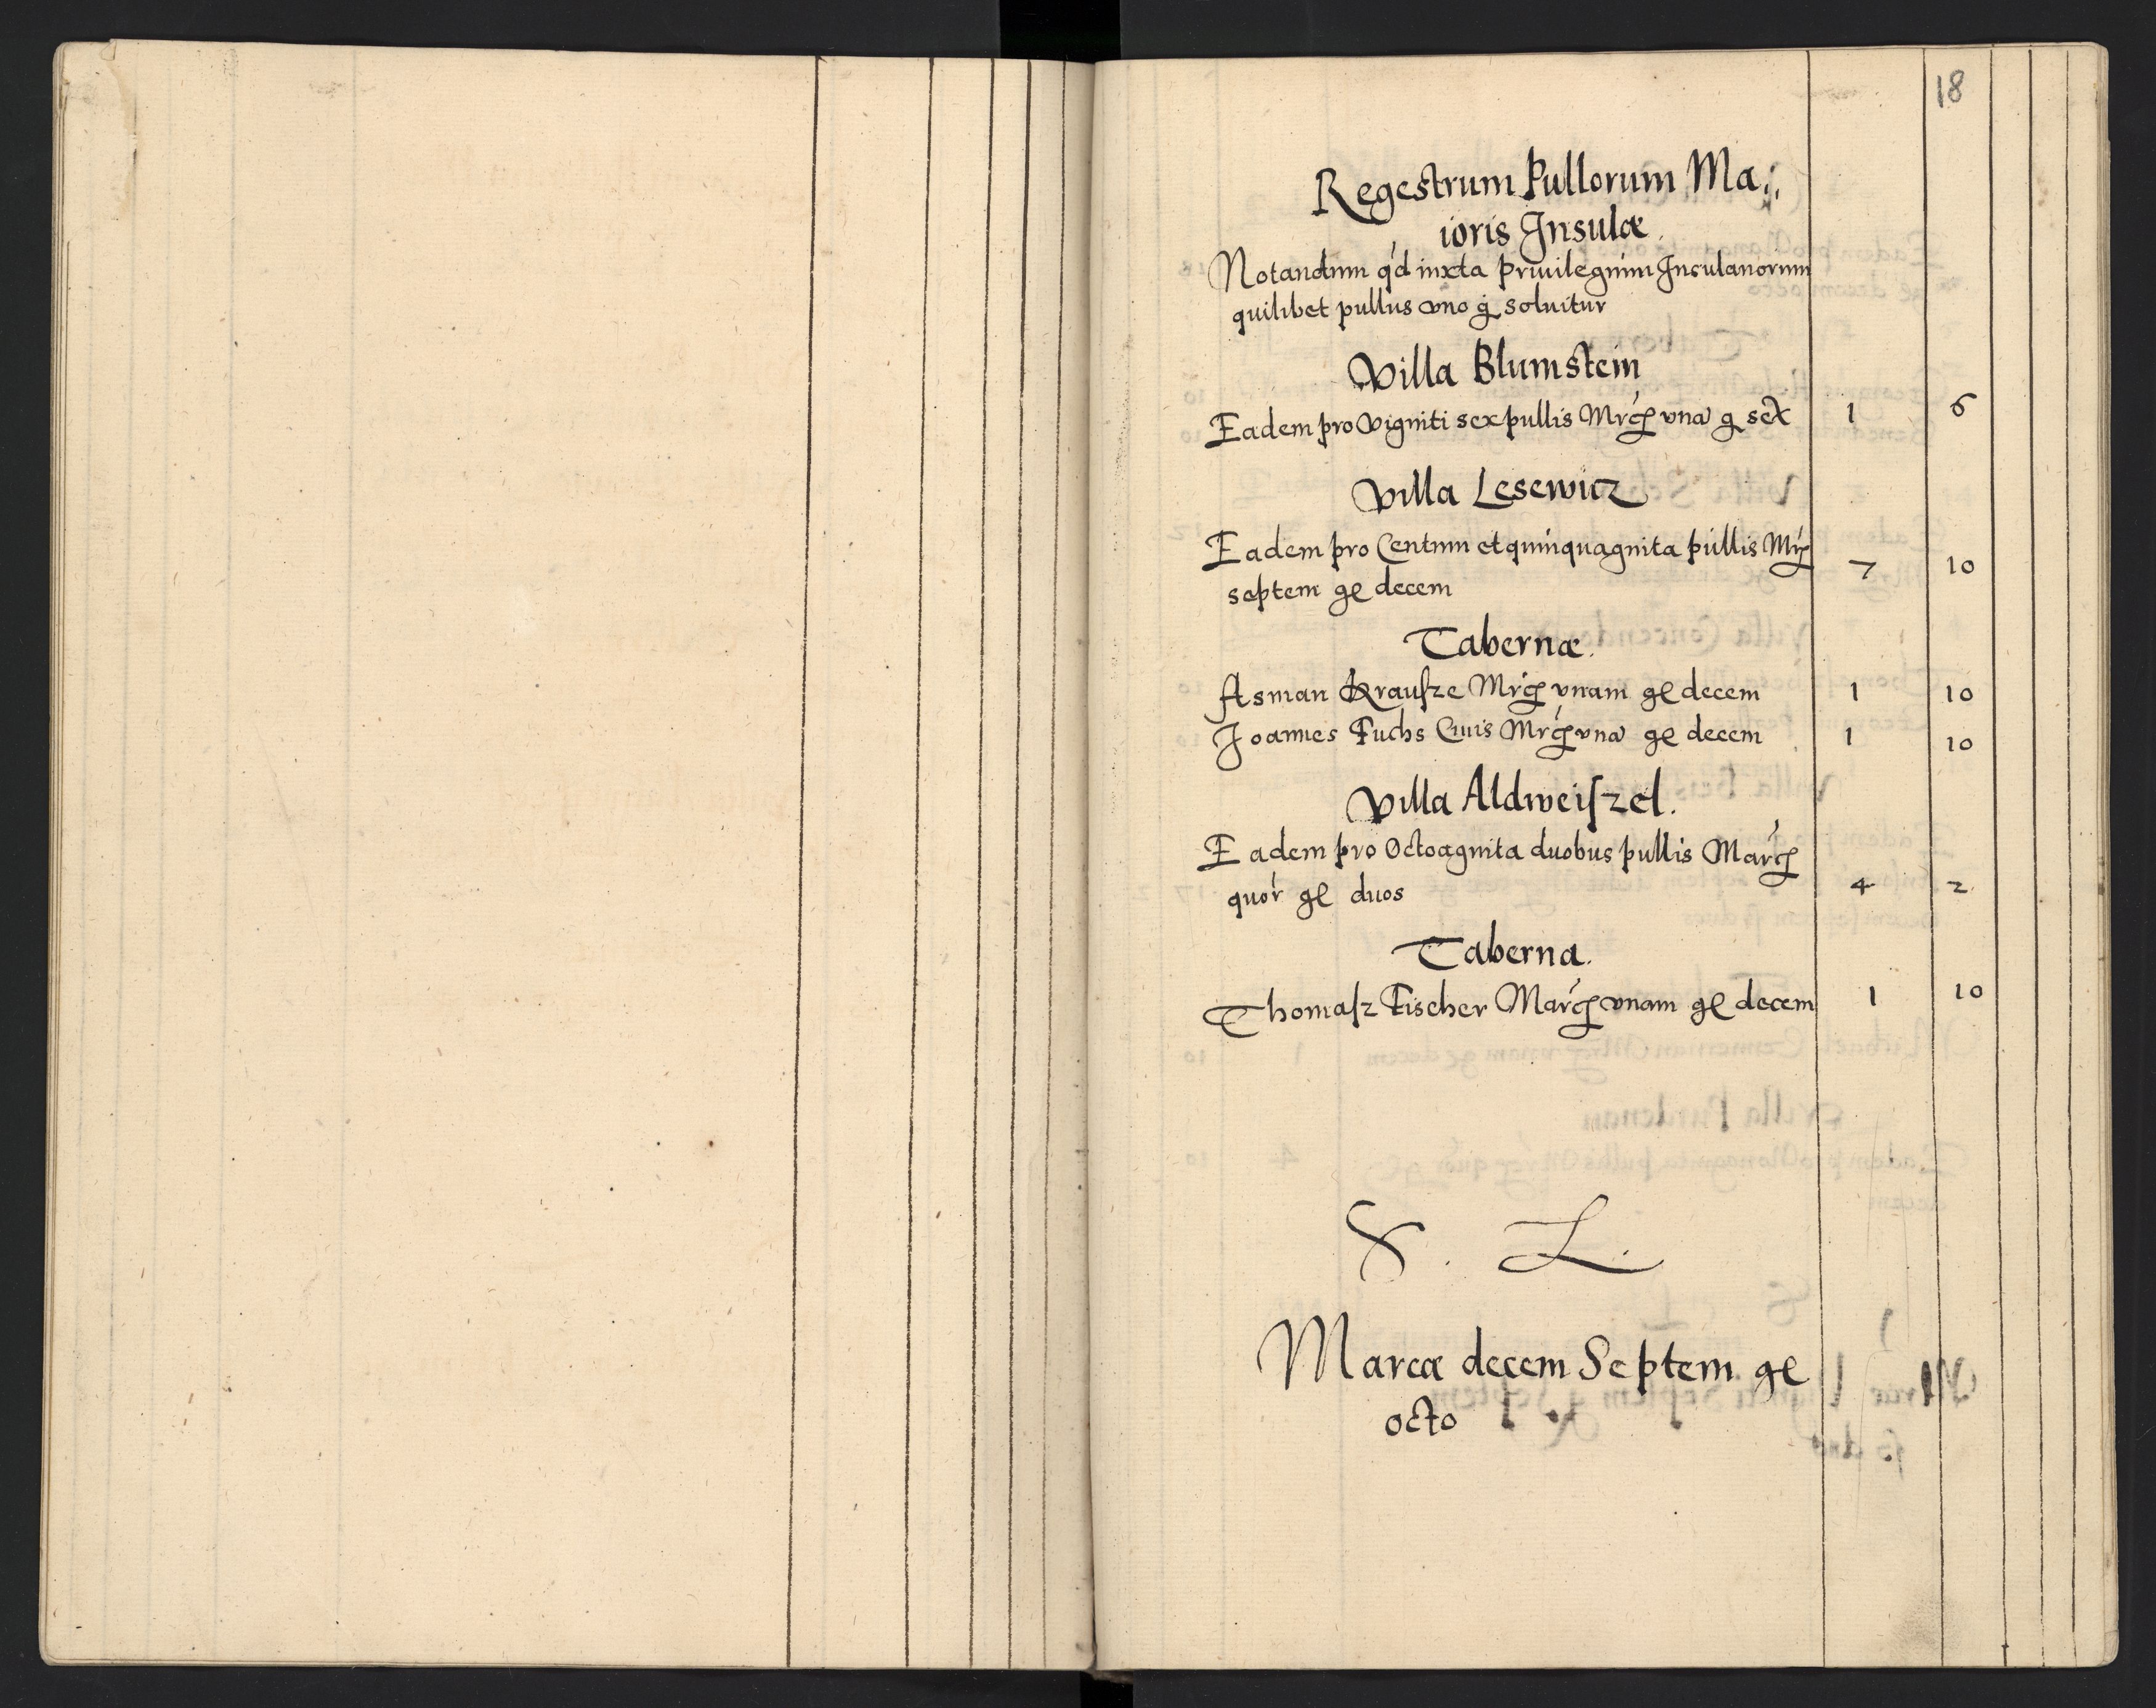 18
Regestrum Pullorum Ma:
ioris Insulæ.
Notandum q'd iuxta priuilegium Insulanorum
quilibet pullus vno g̃ soluitur
Villa Blumstein
Eadem pro Viginti sex pullis Mrcę vna g sex 1 6
Villa Lesewicz
Eadem pro Centum et quinquaginta pullis Mrę
septem ge decem 7 10
Tabernæ.
Asman Krausze Mrcę vnam ge decem 1 10
Joannes Fuchs Ciuis Mrcę vna ge decem 1 10
Villa Aldweiszel.
Eadem pro Octoaginta duobus pullis Marcę
quor ge duos 4 2
Taberna.
Thomasz Fischer Marcę vnam ge decem 1 10
S. L.
Marcæ decem Septem ge
octo